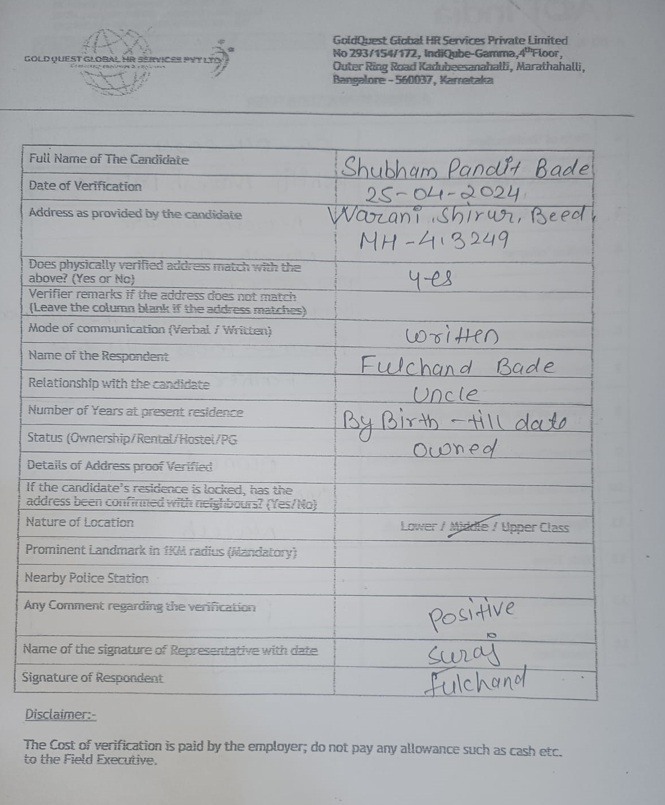 GOLDQUEST GLOBAL HR SERVICES PVT LTD
GoldQuest Global HR Services Private Limited
No 293/154/172, IndiQube-Gamma, 4th Floor,
Outer Ring Road Kadubeesanahalli, Marathahalli,
Bangalore - 560037, Karnataka
Full Name of The Candidate Shubham Pandit Bade
Date of Verification 25-04-2024
Address as provided by the candidate Warani, Shirur, Beed,
MH-413249
Does physically verified address match with the
above? (Yes or No) yes
Verifier remarks if the address does not match
(Leave the column blank if the address matches)
Mode of communication (Verbal / Written) written
Name of the Respondent Fulchand Bade
Relationship with the candidate Uncle
Number of Years at present residence By Birth - till date
Status (Ownership/Rental/Hostel/PG owned
Details of Address proof Verified
If the candidate's residence is locked, has the
address been confirmed with neighbours? (Yes/No)
Nature of Location Lower / Middle / Upper Class
Prominent Landmark in 1KM radius (Mandatory)
Nearby Police Station
Any Comment regarding the verification Positive
Name of the signature of Representative with date Suraj
Signature of Respondent fulchand
Disclaimer:-
The Cost of verification is paid by the employer; do not pay any allowance such as cash etc.
to the Field Executive.